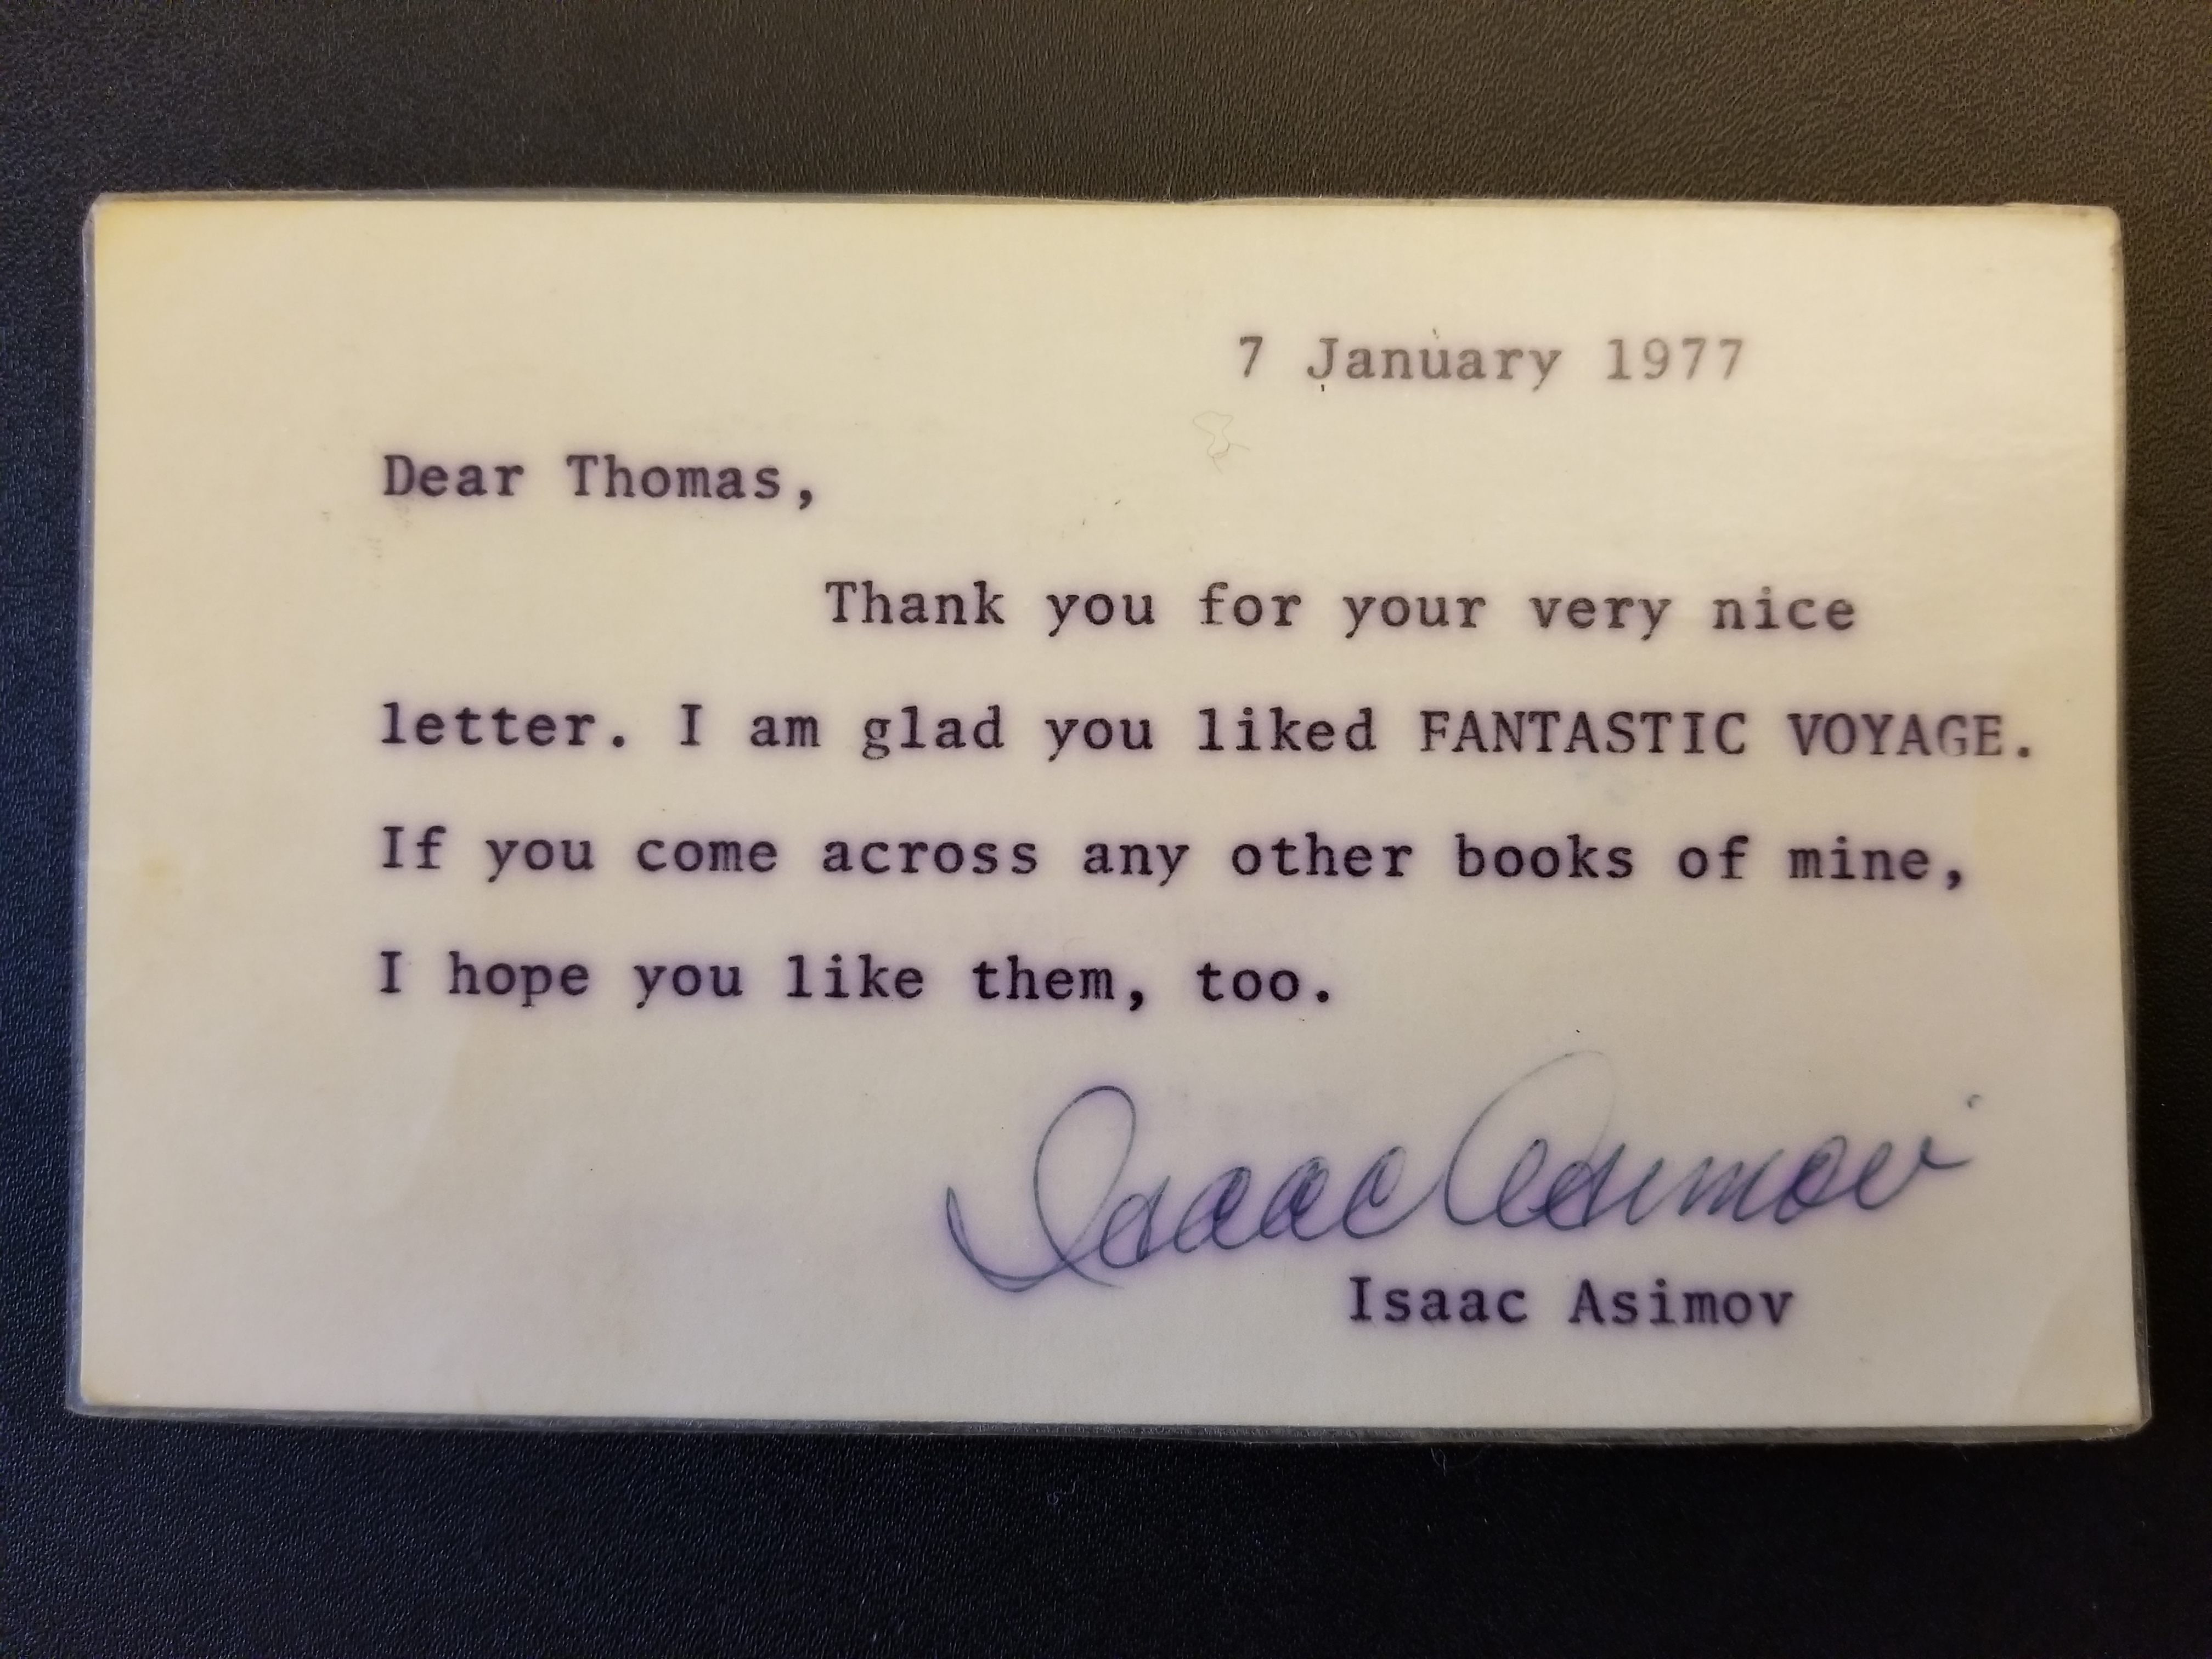 7 January 1977
Dear Thomas,
Thank you for your very nice
letter. I am glad you liked FANTASTIC VOYAGE.
If you come across any other books of mine,
I hope you like them, too.
Isaac Asimov
Isaac Asimov